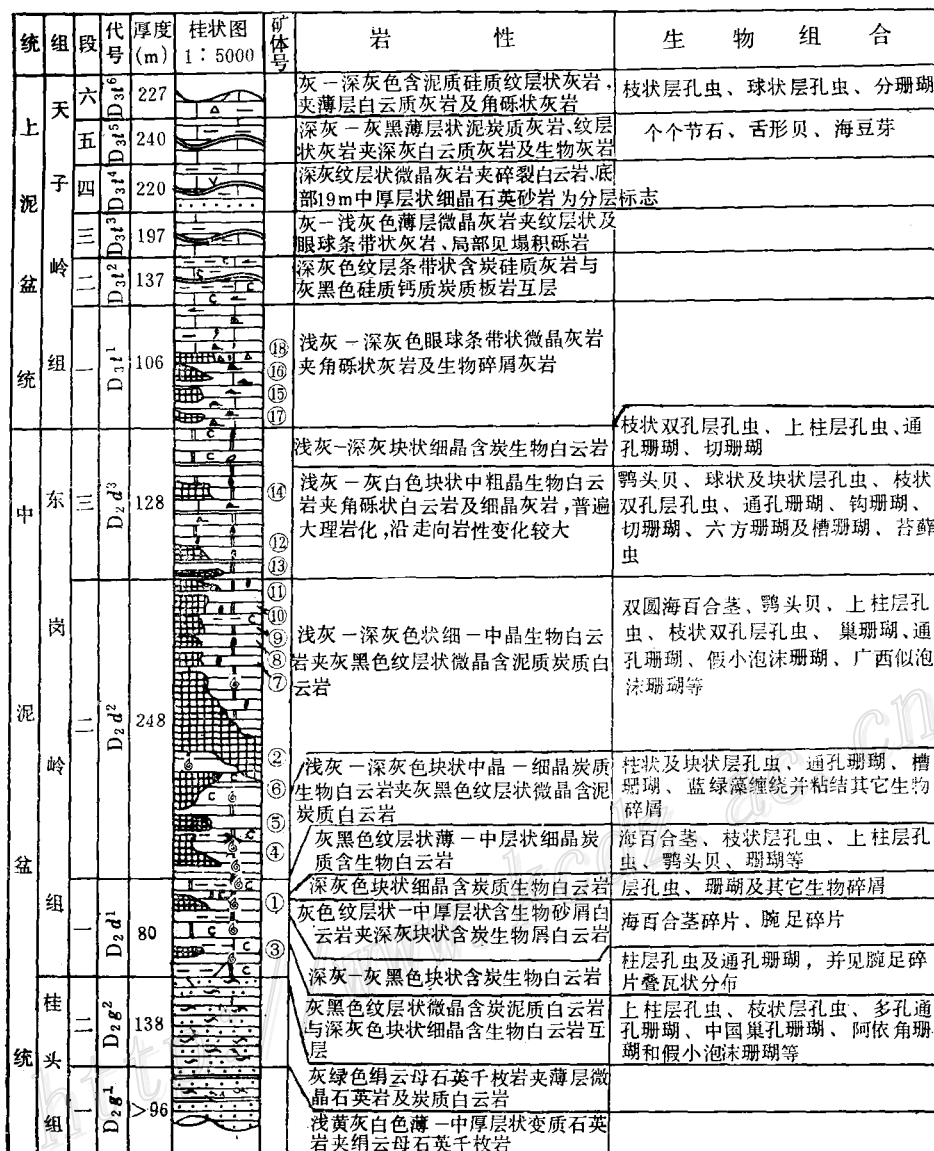 统 组 段 代号 厚度(m) 柱状图 1∶5000 矿体号 岩 性 生 物 组 合
上泥盆统 天子岭组
六 D₃t⁶ 227
灰－深灰色含泥质硅质纹层状灰岩,
夹薄层白云质灰岩及角砾状灰岩
枝状层孔虫、球状层孔虫、分珊瑚
五 D₃t⁵ 240
深灰－灰黑薄层状泥炭质灰岩、纹层
状灰岩夹深灰白云质灰岩及生物灰岩
个个节石、舌形贝、海豆芽
四 D₃t⁴ 220
深灰纹层状微晶灰岩夹碎裂白云岩、底
部19m中厚层状细晶石英砂岩为分层标志
三 D₃t³ 197
灰－浅灰色薄层微晶灰岩夹纹层状及
眼球条带状灰岩、局部见塌积砾岩
二 D₃t² 137
深灰色纹层条带状含炭硅质灰岩与
灰黑色硅质钙质炭质板岩互层
一 D₁t¹ 106
⑱
⑯
⑮
⑰
浅灰－深灰色眼球条带状微晶灰岩
夹角砾状灰岩及生物碎屑灰岩
中泥盆统 东岗岭组
三 D₂d³ 128
⑭
⑫
⑬
浅灰－深灰块状细晶含炭生物白云岩
枝状双孔层孔虫、上柱层孔虫、通
孔珊瑚、切珊瑚
浅灰－灰白色块状中粗晶生物白云
岩夹角砾状白云岩及细晶灰岩,普遍
大理岩化,沿走向岩性变化较大
鹗头贝、球状及块状层孔虫、枝状
双孔层孔虫、通孔珊瑚、钩珊瑚、
切珊瑚、六方珊瑚及槽珊瑚、苔藓
虫
二 D₂d² 248
⑪
⑩
⑨
⑧
⑦
②
⑥
⑤
④
浅灰－深灰色状细－中晶生物白云
岩夹灰黑色纹层状微晶含泥质炭质白
云岩
双圆海百合茎、鹗头贝、上柱层孔
虫、枝状双孔层孔虫、巢珊瑚、通
孔珊瑚、假小泡沫珊瑚、广西似泡
沫珊瑚等
浅灰－深灰色块状中晶－细晶炭质
生物白云岩夹灰黑色纹层状微晶含泥
炭质白云岩
柱状及块状层孔虫、通孔珊瑚、槽
珊瑚、蓝绿藻缠绕并粘结其它生物
碎屑
灰黑色纹层状薄－中层状细晶炭
质含生物白云岩
海百合茎、枝状层孔虫、上柱层孔
虫、鹗头贝、珊瑚等
一 D₂d¹ 80
①
③
深灰色块状细晶含炭质生物白云岩
层孔虫、珊瑚及其它生物碎屑
灰色纹层状－中厚层状含生物砂屑白
云岩夹深灰块状含炭生物屑白云岩
海百合茎碎片、腕足碎片
深灰－灰黑色块状含炭生物白云岩
柱层孔虫及通孔珊瑚，并见腕足碎
片叠瓦状分布
桂头组
二 D₂g² 138
灰黑色纹层状微晶含炭泥质白云岩
与深灰色块状细晶含生物白云岩互
层
上柱层孔虫、枝状层孔虫、多孔通
孔珊瑚、中国巢孔珊瑚、阿依角珊
瑚和假小泡沫珊瑚等
一 D₂g¹ >96
灰绿色绢云母石英千枚岩夹薄层微
晶石英岩及炭质白云岩
浅黄灰白色薄－中厚层状变质石英
岩夹绢云母石英千枚岩
http://www.kcdz.ac.cn